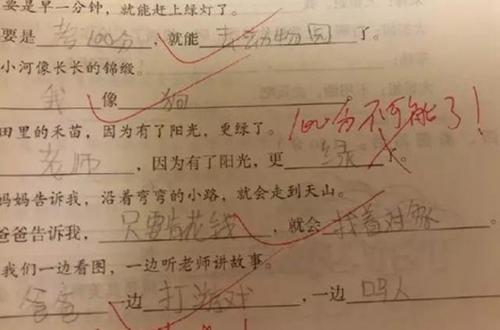 要是早一分钟，就能赶上绿灯了。
要是考100分，就能去动物园了。
小河像长长的锦缎。
我像狗
100分不可能了！
田里的禾苗，因为有了阳光，更绿了。
老师，因为有了阳光，更绿了。
妈妈告诉我，沿着弯弯的小路，就会走到天山。
爸爸告诉我，只要肯花钱，就会找着对象
我们一边看图，一边听老师讲故事。
爸爸一边打游戏，一边吗人